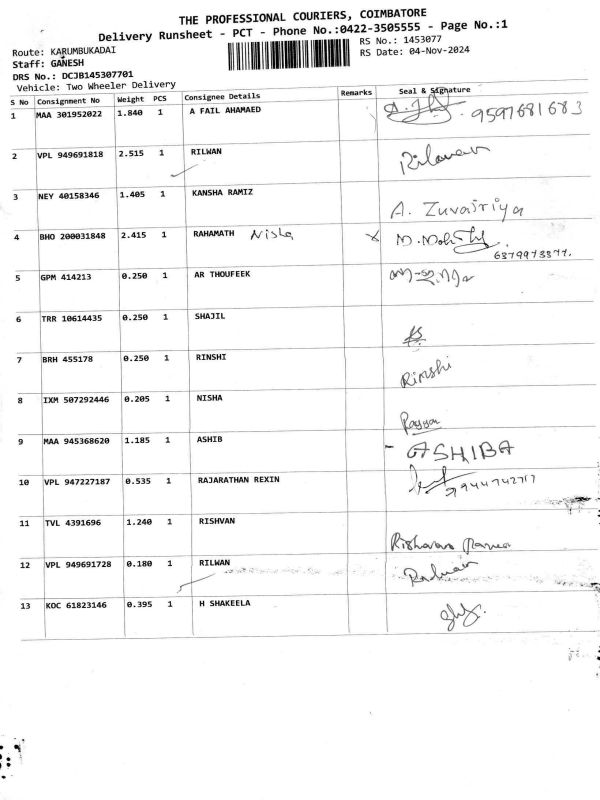 THE PROFESSIONAL COURIERS, COIMBATORE
Delivery Runsheet - PCT - Phone No.:0422-3505555 - Page No.:1
Route: KARUMBUKADAI
RS No.: 1453077
Staff: GANESH
RS Date: 04-Nov-2024
DRS No.: DCJB145307701
Vehicle: Two Wheeler Delivery
S No Consignment No Weight PCS Consignee Details Remarks Seal & Signature
1 MAA 301952022 1.840 1 A FAIL AHAMAED 9597681683
2 VPL 949691818 2.515 1 RILWAN Rilwan
3 NEY 40158346 1.405 1 KANSHA RAMIZ A. Zuvairiya
4 BHO 200031848 2.415 1 RAHAMATH Nisha
5 GPM 414213 0.250 1 AR THOUFEEK
6 TRR 10614435 0.250 1 SHAJIL
7 BRH 455178 0.250 1 RINSHI Rinshi
8 IXM 507292446 0.205 1 NISHA
9 MAA 945368620 1.185 1 ASHIB - ASHIBA
10 VPL 947227187 0.535 1 RAJARATHAN REXIN
11 TVL 4391696 1.240 1 RISHVAN
12 VPL 949691728 0.180 1 RILWAN
13 KOC 61823146 0.395 1 H SHAKEELA